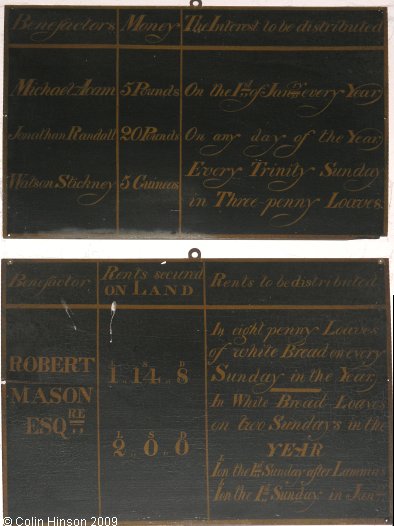 Benefactors Money The Interest to be distributed
Michael Acam 5 Pounds On the 1st of Janry every Year
Jonathan Randall 20 Pounds On any day of the Year
Every Trinity Sunday
Watson Stickney 5 Guineas
in Three-penny Loaves.
Benefactor Rents secured
ON LAND
Rents to be distributed
ROBERT
MASON
ESQRE
L S D
1 " 14 " 8
L S D
2 " 0 " 0
In eight penny Loaves
of white Bread on every
Sunday in the Year
In White Bread Loaves
on two Sundays in the
YEAR
1 on the 1st Sunday after Lammas
1 on the 1st Sunday in Jany
© Colin Hinson 2009